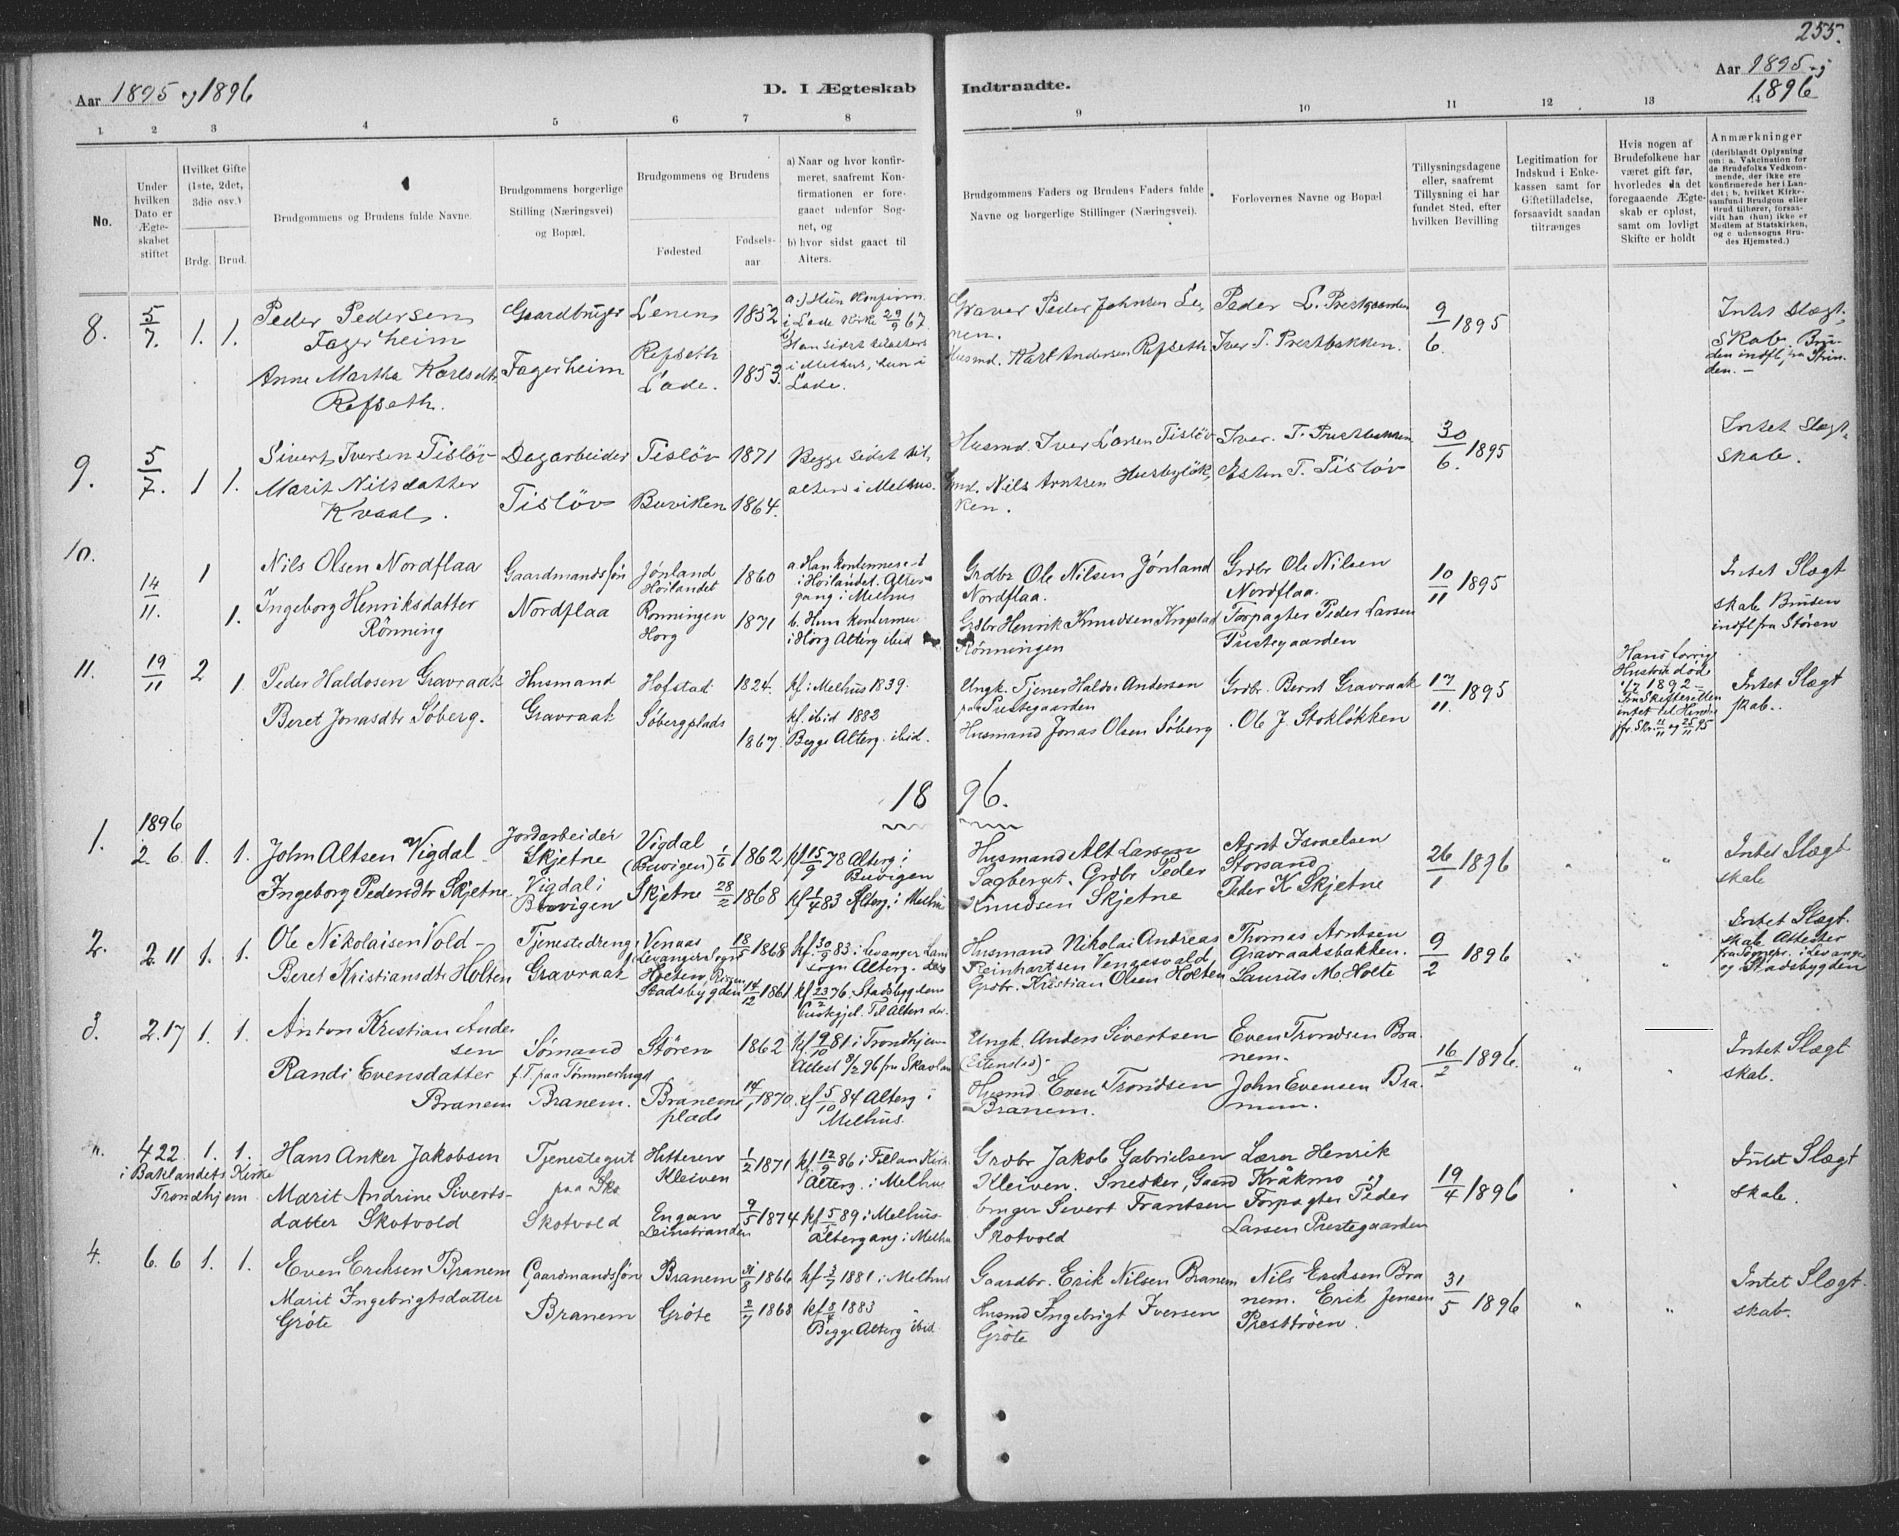 255.
Aar 1895 og 1896
D. I Ægteskab Indtraadte.
Aar 1895 og
1896
1 2 3 4 5 6 7 8 9 10 11 12 13 14
No.
Under
hvilken
Dato er
Ægte-
skabet
stiftet
Hvilket Gifte
(1ste, 2det,
3die osv.)
Brdg. Brud.
Brudgommens og Brudens fulde Navne.
Brudgommens borgerlige
Stilling (Næringsvei)
og Bopæl.
Brudgommens og Brudens
Fødested
Fødsels-
aar
a) Naar og hvor konfir-
meret, saafremt Kon-
firmationen er fore-
gaaet udenfor Sog-
net, og
b) hvor sidst gaaet til
Alters.
Brudgommens Faders og Brudens Faders fulde
Navne og borgerlige Stillinger (Næringsvei).
Forlovernes Navne og Bopæl
Tillysningsdagene
eller, saafremt
Tillysning ei har
fundet Sted, efter
hvilken Bevilling
Legitimation for
Indskud i Enke-
kassen samt for
Giftetilladelse,
forsaavidt saadan
tiltrænges
Hvis nogen af
Brudefolkene har
været gift før,
hvorledes da det
foregaaende Ægte-
skab er opløst,
samt om lovligt
Skifte er holdt
Anmærkninger
(deriblandt Oplysning
om: a. Vakcination for
de Brudefolks Vedkom-
mende, der ikke ere
konfirmerede her i Lan-
det; b. hvilket Kirke-
samfund Brudgom eller
Brud tilhører, forsaa-
vidt han (hun) ikke er
Medlem af Statskirken,
og c. udensogns Bru-
des Hjemsted.)
8. 5/7. 1. 1.
Peder Pedersen
Fagerheim
Anne Martha Karlsdtr
Refseth.
Gaardbruger
Fagerheim
Lenen 1852
Refseth
Lade. 1853.
a.) Hun konfirm.
i Lade Kirke 29/9 67.
Han sidst til alters
i Melhus, hun i
Lade.
Graver Peder Johnsen Le-
nen.
Husmd. Karl Andersen Refseth
Peder L. Prestgaarden
Iver T. Prestbakken.
9/6. 1895
Intet Slægt-
skab. Bru-
den indfl. fra Strin-
den. —
9. 5/7. 1 1.
Sivert Iversen Tisløv
Marit Nilsdatter
Kvaal.
Dagarbeider
Tisløv
Tisløv 1871
Buviken 1864.
Begge sidst til
alters i Melhus.
Husmd. Iver Larsen Tisløv
Gmd. Nils Arntsen Husbyløk-
ken.
Iver. T. Prestbakken
Esten T. Tisløv
30/6. 1895
Intet Slægt-
skab.
10.
14/11. 1 1.
Nils Olsen Nordflaa
Ingeborg Henriksdatter
Rønning
Gaardmandssøn
Nordflaa
Jønland
Høilandet 1860
Rønningen
Horg 1871
a Han konfirmeret
i Høilandet. Alter-
gang i Melhus
b. Hun konfirmer
i Horg Alterg ibid
Grdbr Ole Nilsen Jønland
Nordflaa.
Grdbr Henrik Knudsen Kropstad
Rønningen
Grdbr Ole Nilsen
Nordflaa.
Forpagter Peder Larsen
Prestegaarden
10/11 1895
Intet Slægt
skab Bruden
indfl fra Støren
11. 19/11 2 1.
Peder Haldosen Gravraak
Beret Jonasdtr Søberg.
Husmand
Gravraak
Hofstad 1824.
Søbergplads
1867.
kf. i Melhus 1839.
kf. ibid 1882
Begge Alterg. ibid.
Ungk. Tjener Haldo Andersen
paa Prestegaarden
Husmand Jonas Olsen Søberg
Grdbr. Bernt Gravraak
Ole J. Stokløkken
17/11. 1895
Hans forrige
Hustru død
1892 —
Fra Skifteretten
intet til Hinder
jfr. Skr. 11/11 og 25/11 95
Intet Slægt
skab.
18 96.
1. 1896
2. 6. 1. 1.
John Altsen Vigdal
Ingeborg Pedersdtr Skjetne
Jordarbeider
Skjetne
Vigdal i
Buvigen
Vigdal
(Buvigen) 1/6 1862
Skjetne 28/2 1868
kf 15/9 78 Alterg i
Buvigen
kf 1/4 83 Alterg. i Melhus
Husmand Alt Larsen
Sagberget. Grdbr Peder
Knudsen Skjetne
Arnt Israelsen
Storsand
Peder K Skjetne
26/1 1896
" "
Intet Slægt
skab
2. 2. 11 1. 1.
Ole Nikolaisen Vold
Beret Kristiansdtr Holten
Tjenestedreng
Gravraak
Venaas
Levanger Sogn 18/9 1868
Holten, Rissen
Stadsbygden 14/12 1861
kf. 30/9 83. i Levanger Lands
sogn Alterg.
kf 23/2 76. Stadsbygdens
Husmand Nikolai Andreas
Reinhartsen Vengesvald
Grdbr. Kristian Olsen Holten
Thomas Arntsen
Gravraaksbakken.
Laurits M. Holte
9/2 1896
"
Intet Slægt.
skab Attester
fra Sognepr. i Levanger
og Stadsbygden
3. 2. 17 1. 1.
Anton Kristian Ander
sen
Randi Evensdatter
Branem
Sømand
f. T. paa Tømmerhugst
Branem.
Støren 1862
Branems
plads 14/1 1870.
kf. 9/10 81 i Trondhjem
Attest 9/2 96 fra Skavlan
kf 5/10 84 Alterg i
Melhus.
Ungk. Anders Sivertsen
Husmd Even Trondsen
Branem.
Even Trondsen Bra
nem.
John Evensen Bra.
nem.
16/2 1896.
" "
Intet Slægt
skab.
". 4 22. 1. 1.
i Baklandets Kirke
Trondhjem
Hans Anker Jakobsen
Marit Andrine Siverts-
datter Skotvold
Tjenestegut
paa Sko
Skotvold
Hitteren
Kleiven 1/2 1871
Engan
Leinstranden 9/5 1874
kf. 12/9 86 i Fillan Kirke
Alterg. i Melhus
kf 5/ 89 i Melhus.
Altergang i Melhus
Grdbr Jakob Gabrielsen
Kleiven. Snedker, Gaard
bruger Sivert Frantsen
Skotvold
Lærer Henrik
Kråkmo og
Forpagter Peder
Larsen Prestegaarden
19/4 1896
" "
Intet Slægt
skab.
4. 6. 6 1. 1.
Even Eriksen Branem
Marit Ingebrigtsdatter
Grøte
Gaardmandssøn
Branem
Branem 31/8 1866
Grøte 2/7 1868
kf 3/7 1881 i Melhus
kf 8/ 1883 "
Begge Alterg ibid.
Gaardbr. Erik Nilsen Branem
Husmd Ingebrigt Iversen
Grøte
Nils Eriksen Bra
nem. Erik Jensen
Presttrøen.
31/5 1896
" "
Intet Slægt.
skab.